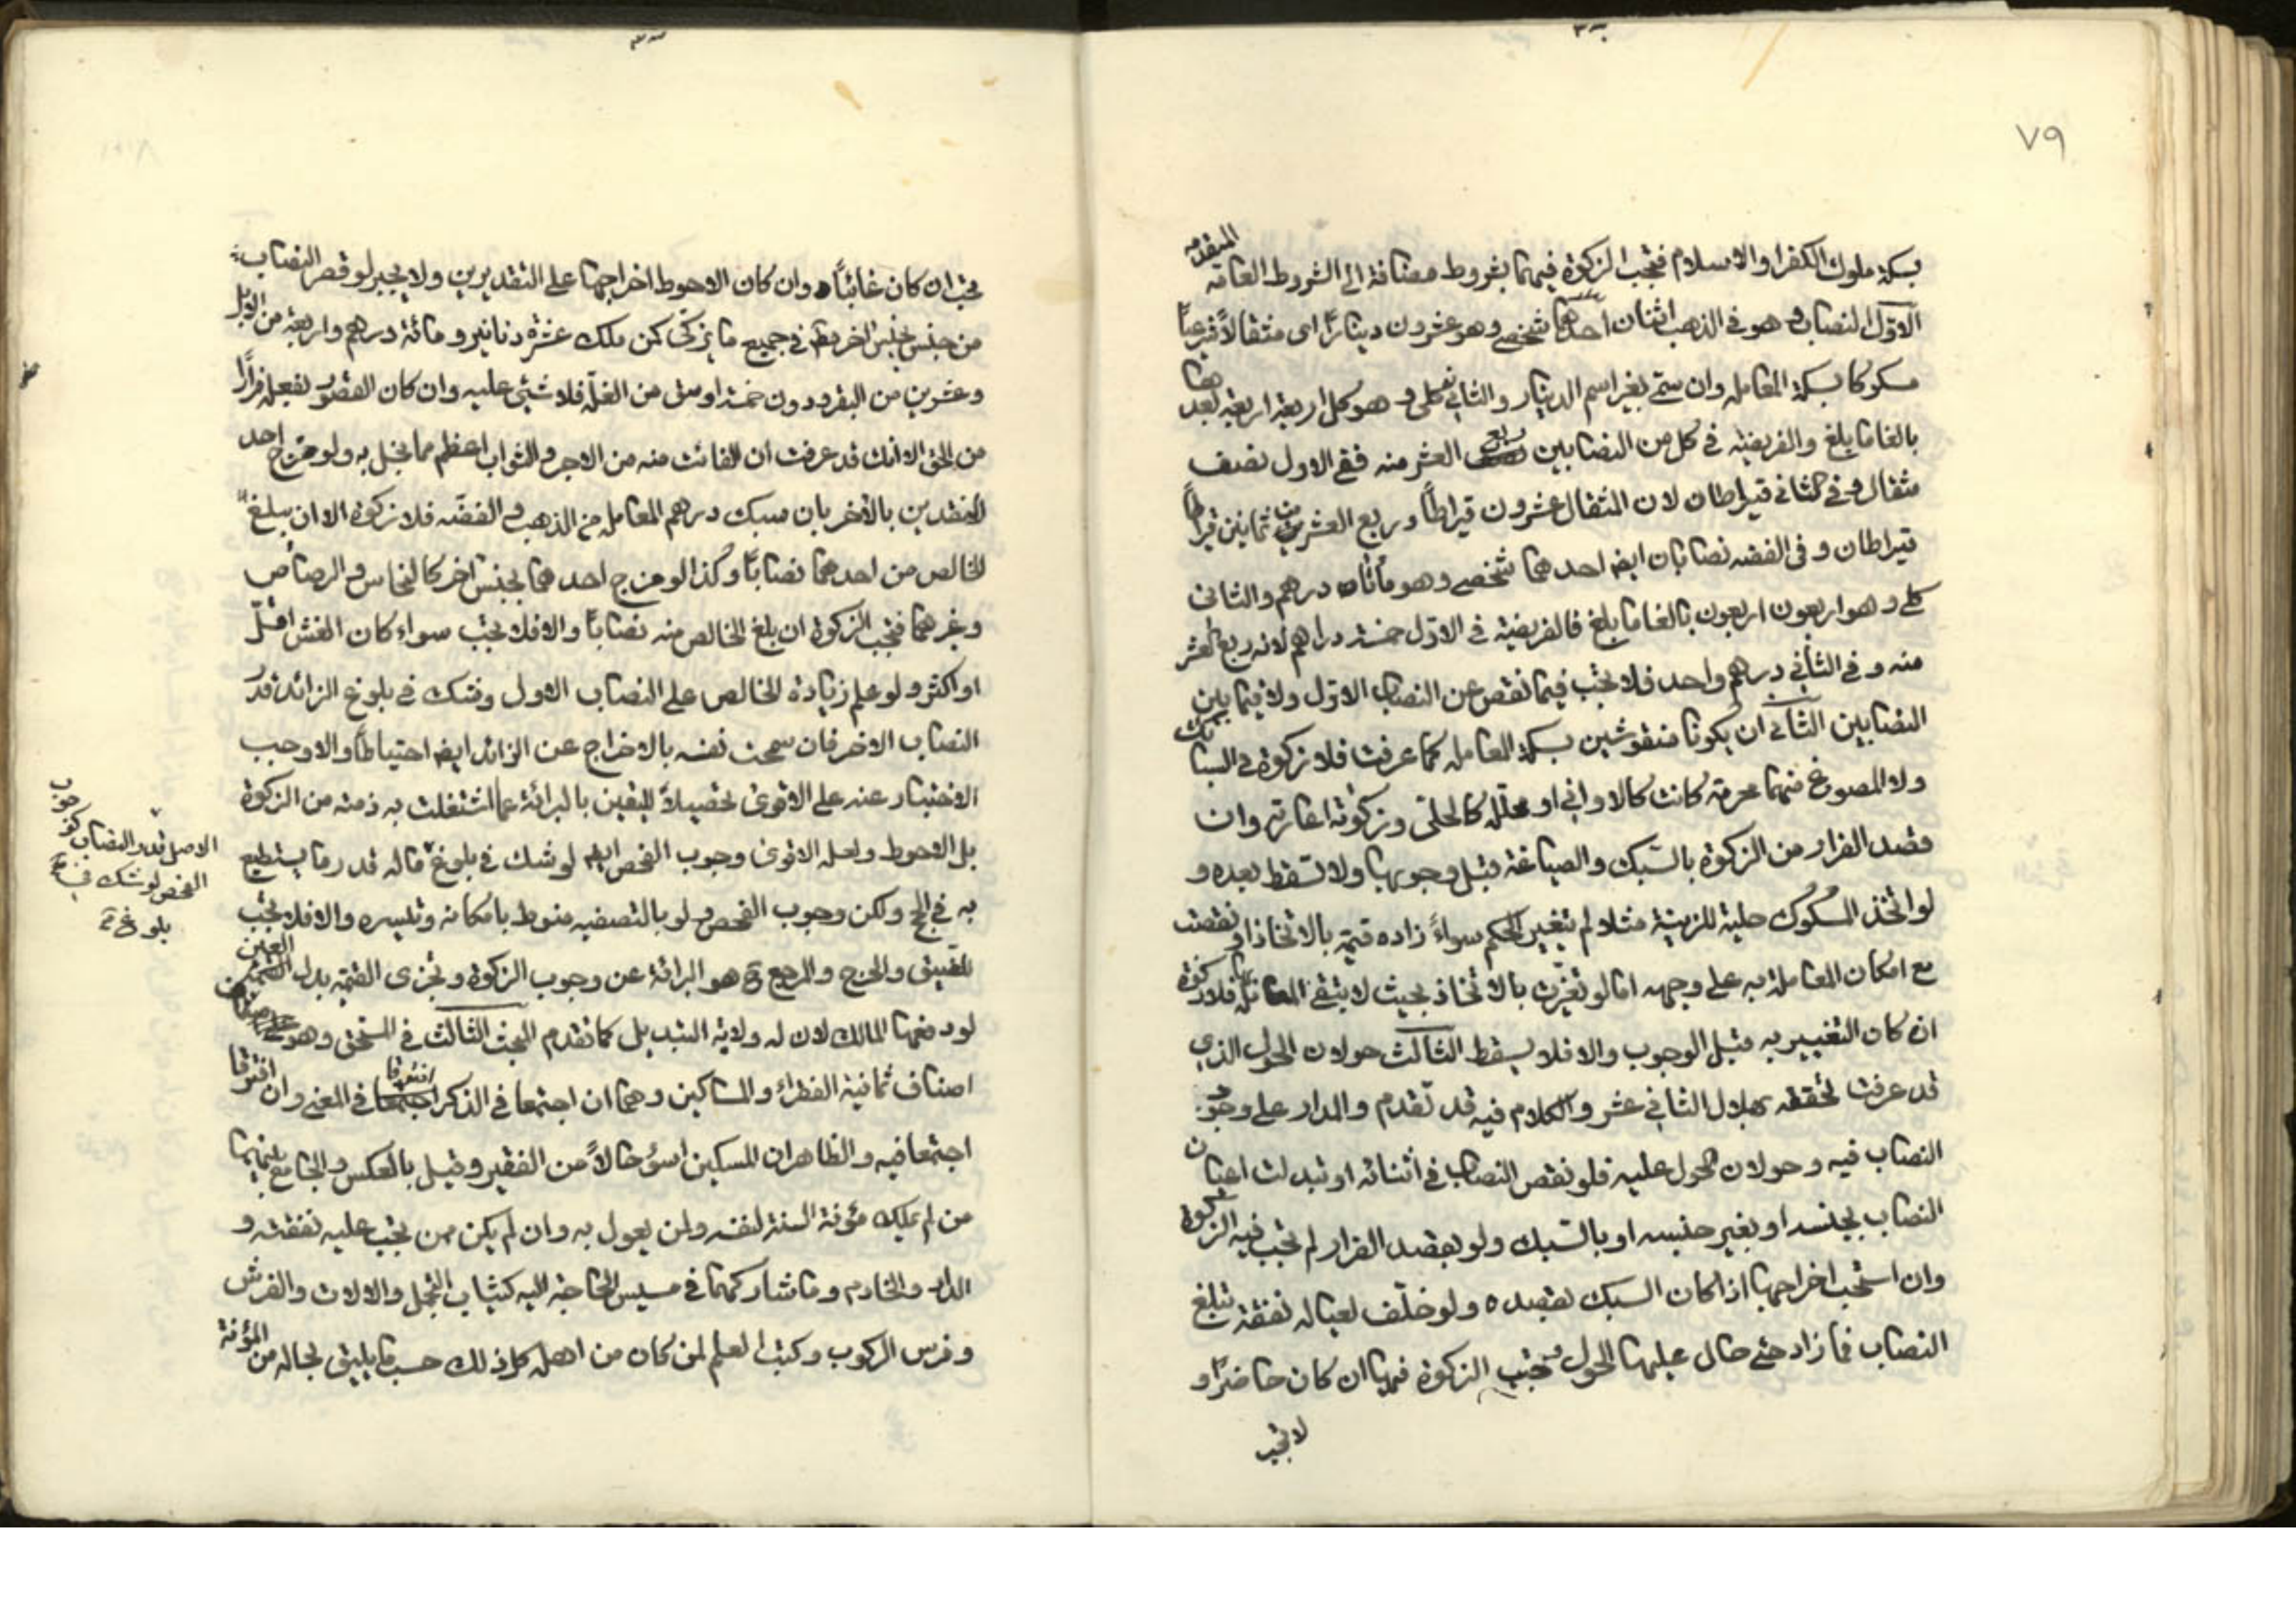 ٧٩
بسكة ملوك الكفر او الاسلام فتجب الزكوة فيهما بشروط مضافة الى الشروط العامة المتقدمه
الاول النصاب و هو فى الذهب اثنان احدهما شخصى وهو عشرون دينارًا اى مثقالاً شرعياً
مسكوكا بسكة المعامله وان سمى بغير اسم الدينار والثانى كلى و هو كل اربعة اربعة بعدها
بالغا ما بلغ والفريضه فى كل من النصابين ربع العشر منه ففى الاول نصف
مثقال و فى الثانى قيراطان لان المثقال عشرون قيراطاً وربع العشر من ثمانين قيراطاً
قيراطان و فى الفضه نصابان ايضا احدهما شخصى وهو مأتان درهم والثانى
كلى و هو اربعون اربعون بالغا ما بلغ فالفريضة فى الاول خمسة دراهم لانه ربع العشر
منه و فى الثانى درهم واحد فلا تجب فيما نقص عن النصاب الاول ولا فيما بين
النصابين الثانى ان يكونا منقوشين بسكة المعامله كما عرفت فلا زكوة فى السبائك
ولا المصوغ منهما محرمة كانت كالاوانى او محلله كالحلى و زكوته اعارته وان
قصد الفرار من الزكوة بالسبك والصياغة قبل وجوبها ولا تسقط بعده و
لو اتخذ المسكوك حلية للزينة مثلا لم يتغير الحكم سواءً زاده قيمة بالاتخاذ او نقصت
مع امكان المعاملة به على وجهه اما لو تغيرت بالاتخاذ بحيث لا يبقى المعامله فلا زكوة
ان كان التغيير به قبل الوجوب والا فلا يسقط الثالث حولان الحول الذى
قد عرفت تحققه بهلال الثانى عشر والكلام فيه قد تقدم والمدار على وجود
النصاب فيه وحولان الحول عليه فلو نقص النصاب فى اثنائه او تبدلت اعيان
النصاب بجنسه او بغير جنسه او بالسبك ولو بقصد الفرار لم تجب فيه الزكوة
وان استحب اخراجها اذا كان السبك بقصده ولو خلف لعياله نفقة تبلغ
النصاب فما زاد حتى حال عليها الحول تجب الزكوة فيها ان كان حاضرًا و
لا تجب
تجب ان كان غائباً وان كان الاحوط اخراجها على التقديرين ولا يجبر لو قصر النصاب
من جنس بجنس اخر فى جميع ما يزكى كمن ملك عشرة دنانير و مائة درهم واربعة من الابل
وعشرين من البقر و دون خمسة اوسق من الغلة فلا شيئ عليه وان كان القصور بفعله فرارًا
من الحق الا انك قد عرفت ان الفائت منه من الاجر و الثواب اعظم مما بخل به ولو مزج احد
النقدين بالاخر بان سبك درهم المعامله من الذهب و الفضه فلا زكوة الا ان يبلغ
الخالص من احدهما نصاباً وكذا لو مزج احدهما بجنس اخر كالنحاس و الرصاص
وغيرهما فتجب الزكوة ان بلغ الخالص منه نصاباً والا فلا تجب سواء كان الغش اقل
او اكثر ولو علم زيادة الخالص على النصاب الاول وشك فى بلوغ الزائد قدر
النصاب الاخر فان سمحت نفسه بالاخراج عن الزائد ايضا احتياطاً والا وجب
الاختبار عنه على الاقوى تحصيلاً لليقين بالبرائة عما اشتغلت به ذمته من الزكوة
بل الاحوط ولعله الاقوى وجوب الفحص ايضا لو شك فى بلوغ ماله قدر ما يستطيع
به فى الحج ولكن وجوب الفحص و لو بالتصفيه منوط بامكانه وتيسره والا فلا يجب
للضيق والحرج والمرجع ح هو البرائة عن وجوب الزكوة وتجزى القيمة بدل العين
لو دفعها المالك لان له ولاية التبديل كما تقدم البحث الثالث فى المستحق وهو على
اصناف ثمانية الفقراء والمساكين وهما ان اجتمعا فى الذكر افترقا فى المعنى وان افترقا
اجتمعا فيه والظاهر ان المسكين اسوء حالاً من الفقير وقيل بالعكس والجامع بينهما
من لم يملك مؤنة السنة لنفسه ولمن يعول به وان لم يكن ممن تجب عليه نفقته و
الدار والخادم وما شاركهما فى مسيس الحاجة اليه كثياب التجمل والالات والفرش
وفرس الركوب وكتب العلم لمن كان من اهله كل ذلك حسب ما يليق بحاله من المؤنة
الاصل قدر النصاب كوجوب
الفحص لو شك فى
بلوغ